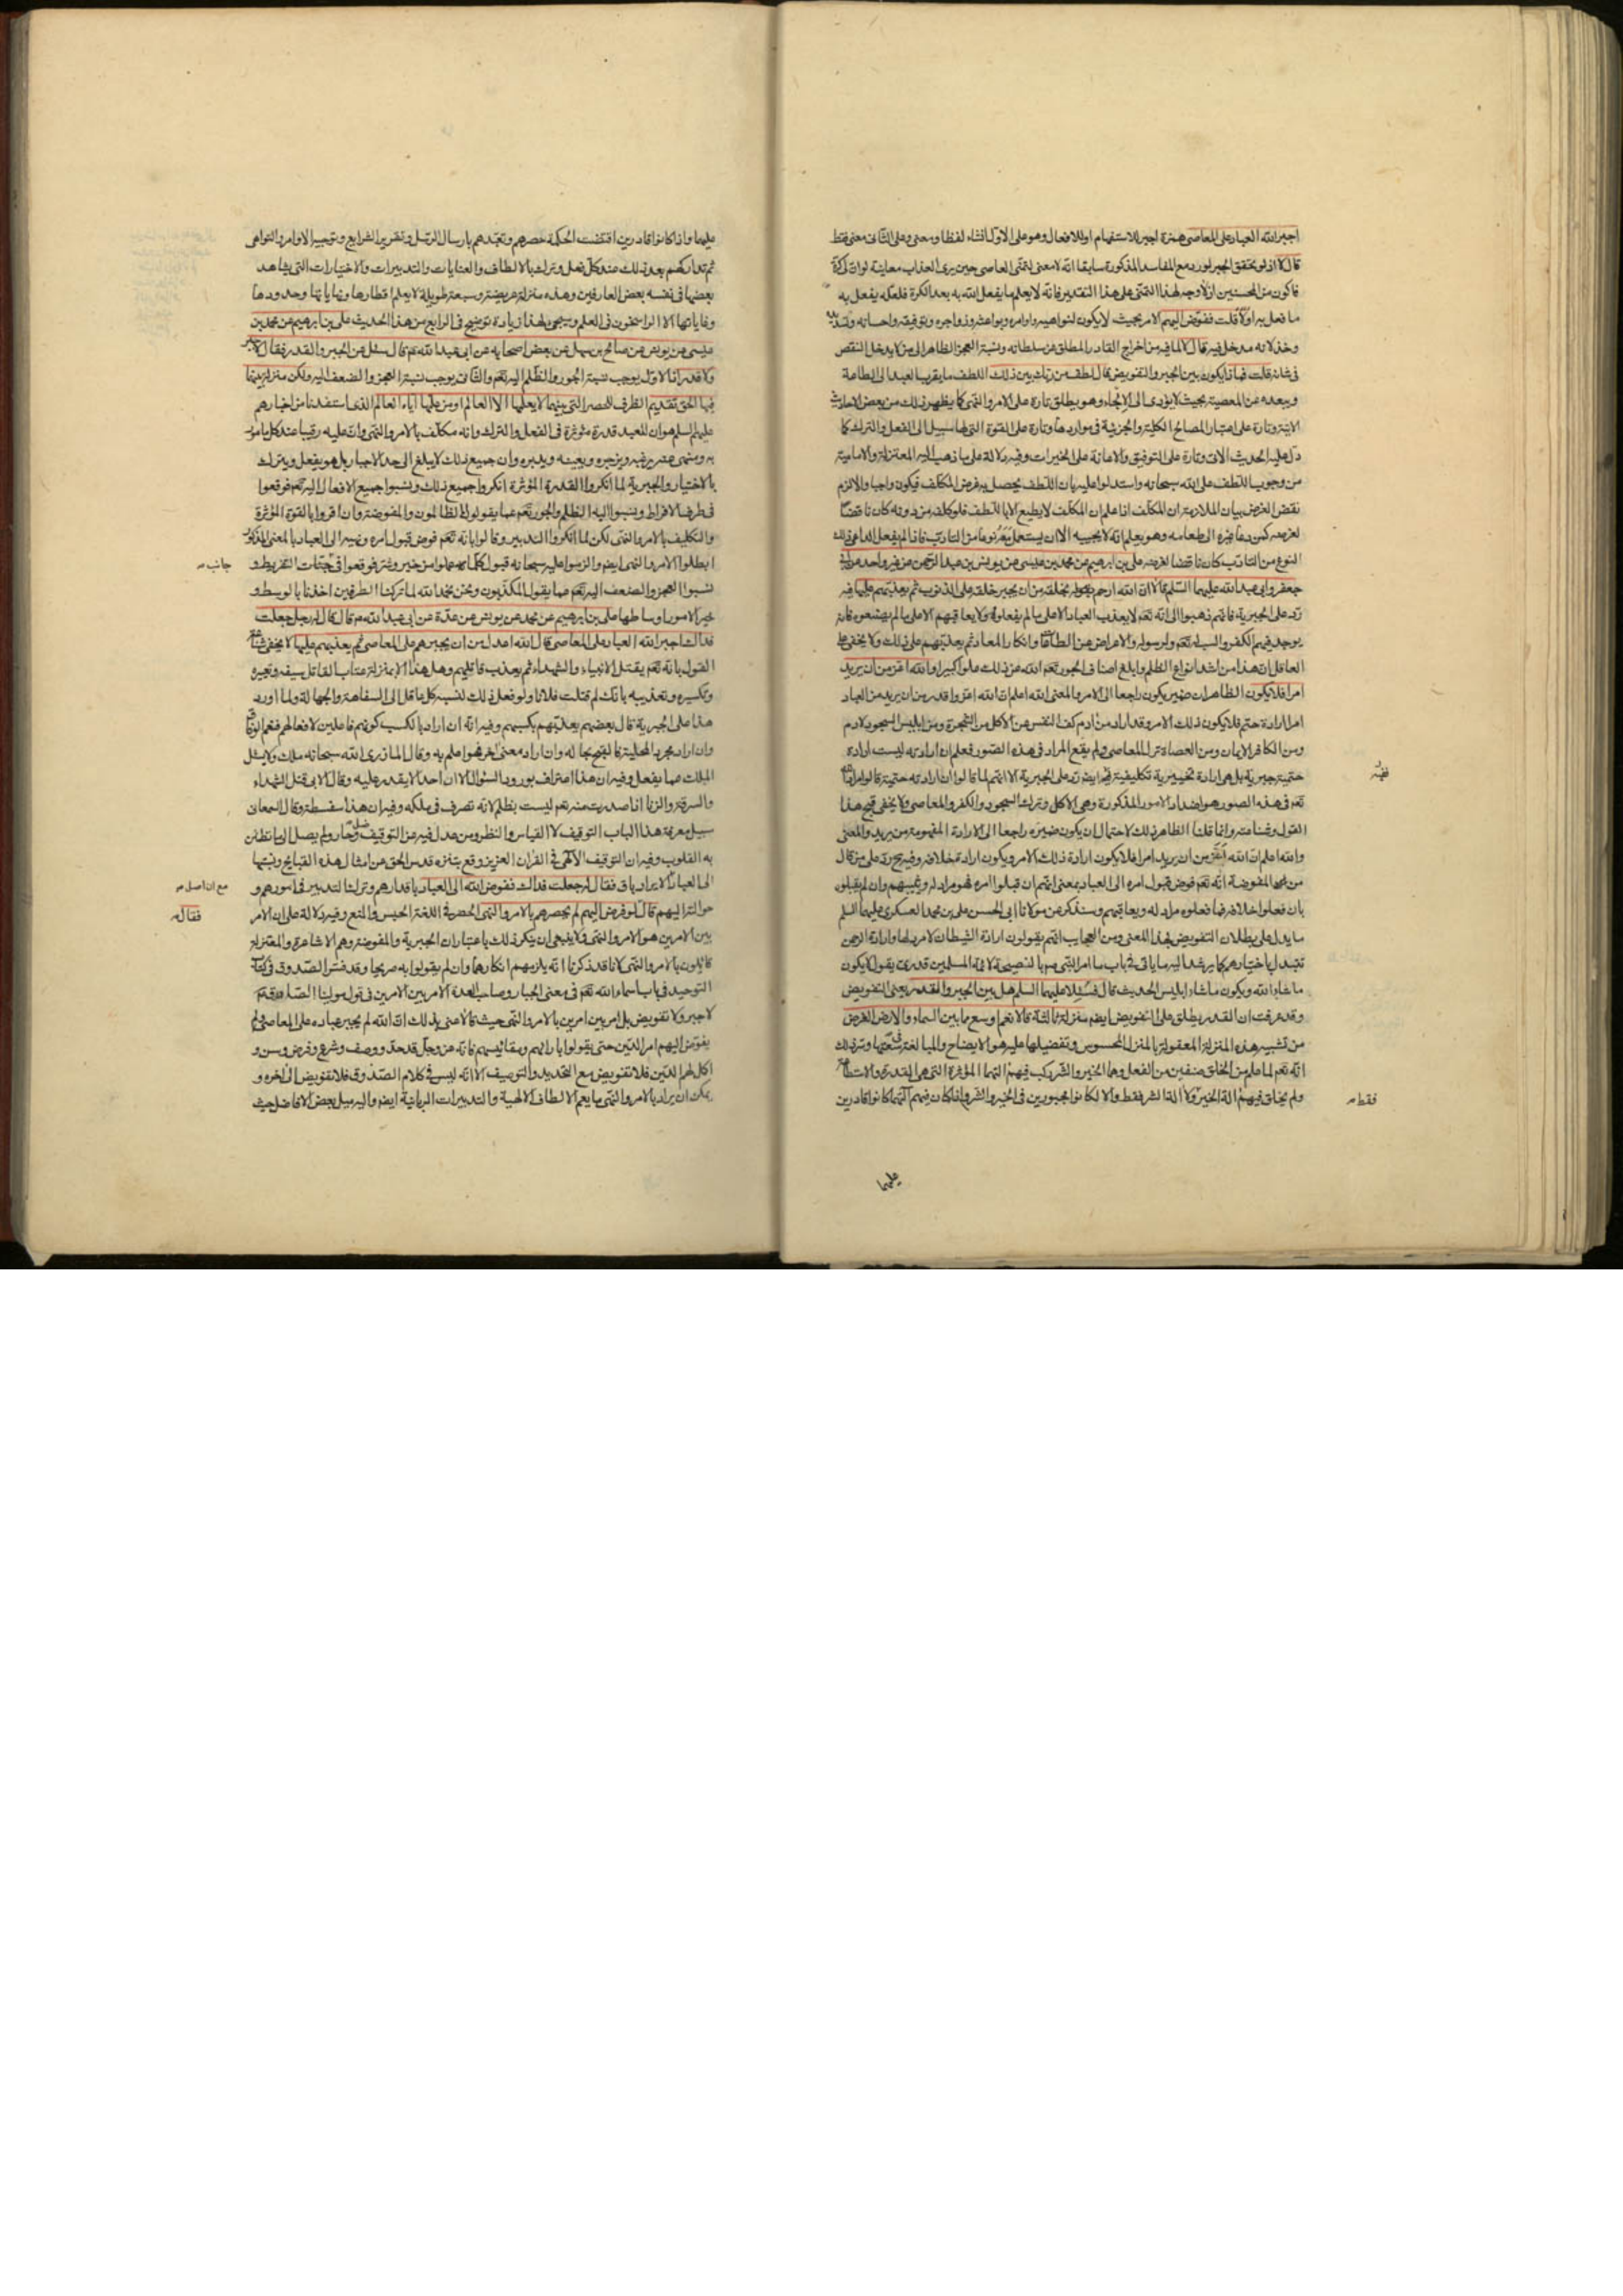 اجبر الله العباد على المعاصى همزة اجبر للاستفهام او للافعال وهو على الاول انشاء لفظا ومعنى وعلى الثانى معنى فقط
قال لا اذ لو تحقق الجبر لورد مع المفاسد المذكورة سابقا انه لا معنى لتمنى العاصى حين يرى العذاب معاينة لو ان لى كرة
فاكون من المحسنين اذ لا وجه لهذا التمنى على هذا التقدير فانه لا يعلم ما يفعل الله به بعد الكرة فلعله يفعل به
ما فعل به اولا قلت ففوض اليهم الامر بحيث لا يكون لنواهيه واوامره وبواعثه وزواجره وتوفيقه واحسانه
وخذلانه مدخل فيه قال لا لما فيه من اخراج القادر المطلق عن سلطانه ونسبة العجز الظاهر الى من لا يدخل النقص
فى شانه قلت فماذا يكون بين الجبر والتفويض قال لطف من ربك بين ذلك اللطف ما يقرب العبد الى الطاعة
ويبعده عن المعصية بحيث لا يؤدى الى الالجاء وهو يطلق تارة على الامر والنهى كما يظهر ذلك من بعض الاحاديث
الاتية وتارة على اعتبار المصالح الكلية والجزئية فى مواردها وتارة على القوة التى لها سبيل الى الفعل والترك كما
دل عليه الحديث الاتى وتارة على التوفيق والاعانة على الخيرات وفيه دلالة على ما ذهب اليه المعتزلة والامامية
من وجوب اللطف على الله سبحانه واستدلوا عليه بان اللطف يحصل به غرض المكلف فيكون واجبا والا لزم
نقض الغرض بيان الملازمة ان المكلف اذا علم ان المكلف لا يطيع الا باللطف فلو كلفه من دونه كان ناقضا
لغرضه كمن دعا غيره الى طعامه وهو يعلم انه لا يجيبه الا ان يستعمل معه نوعا من التادب فاذا لم يفعل الداعى ذلك
النوع من التادب كان ناقضا لغرضه على بن ابراهيم عن محمد بن عيسى عن يونس بن عبد الرحمن عن غير واحد عن ابى
جعفر وابى عبد الله عليهما السلم قالا ان الله ارحم بخلقه من ان يجبر خلقه على الذنوب ثم يعذبهم عليها فيه
رد على الجبرية فانهم ذهبوا الى انه تعم لا يعذب العباد الا على ما لم يفعلوه ولا يعاقبهم الا على ما لم يصنعوه فانه
يوجد فيهم الكفر والسب له تعم ولرسوله والاعراض عن الطاعات وانكار المعاد ثم يعذبهم على ذلك ولا يخفى على
العاقل ان هذا من اشد انواع الظلم وابلغ اصناف الجور تعم الله عن ذلك علوا كبيرا والله اعز من ان يريد
امرا فلا يكون الظاهر ان ضمير يكون راجعا الى الامر والمعنى الله اعلم ان الله اعز واقدر من ان يريد من العباد
امرا ارادة حتم فلا يكون ذلك الامر وقد اراد من ادم كف النفس عن الاكل من الشجرة ومن ابليس السجود لادم
ومن الكافر الايمان ومن العصاة ترك المعاصى ولم يقع المراد فى هذه الصور فعلم ان ارادته ليست ارادة
حتمية جبرية بل هى ارادة تخييرية تكليفية ففيه ايضا رد على الجبرية لانهم لما قالوا ان ارادته حتمية قالوا مراد الله
تعم فى هذه الصور هو اضداد الامور المذكورة وهى الاكل وترك السجود والكفر والمعاصى ولا يخفى قبح هذا
القول وشناعته وانما قلنا الظاهر ذلك لاحتمال ان يكون ضميره راجعا الى الارادة المفهومة من يريد والمعنى
والله اعلم ان الله اعز من ان يريد امرا فلا يكون ارادة ذلك الامر ويكون ارادة خلافه وفيه ح رد على من قال
من المفوضة انه تعم فوض قبول امره الى العباد بمعنى انهم ان قبلوا امره فهو مراد له ويثيبهم وان لم يقبلوه
بان فعلوا خلافه فما فعلوه مراد له ويعاقبهم وسنذكر عن مولانا ابى الحسن على بن محمد العسكرى عليهما السلم
ما يدل على بطلان التفويض بهذا المعنى ومن العجايب انهم يقولون ارادة الشيطان لامر لها وارادة الرحمن
تتبدل باختيارهم كما يرشد اليه ما ياتى فى باب ما امر النبى ص بالنصيحة لائمة المسلمين قدرى يقول لا يكون
ما شاء الله ويكون ما شاء ابليس الحديث قال فسئلا عليهما السلم هل بين الجبر والقدر يعنى التفويض
وقد عرفت ان القدر يطلق على التفويض ايضم منزلة ثالثة قالا نعم اوسع ما بين السماء والارض الغرض
من تشبيه هذه المنزلة المعقولة بالمنزل المحسوس وتفضيلها عليه هو الايضاح والمبالغة فى سعتها وتر ذلك
انه تعم لما علم من الخلق صنفين من الفعل وهما الخير والشر ركب فيهم التهما المؤثرة التى هى القدرة والاستطاعة
ولم يخلق فيهم الة الخير ولا الة الشر فقط والا لكانوا مجبورين فى الخير والشر واذا كان فيهم آلتهما كانوا قادرين
فقط
عليهما
عليهما واذا كانوا قادرين اقتضت الحكمة حصرهم وتعبدهم بارسال الرسل وتقرير الشرايع وتوجيه الاوامر والنواهى
ثم تداركهم بعد ذلك عند كل فعل وترك بالالطاف والعنايات والتدبيرات والاختيارات التى يشاهد
بعضها فى نفسه بعض العارفين وهذه منزلة عريضة وسيعة طويلة لا يعلم اقطارها ونهاياتها وحدودها
وغاياتها الا الراسخون فى العلم وسيجىء لهذا زيادة توضيح فى الرابع من هذا الحديث على بن ابراهيم عن محمد بن
عيسى عن يونس عن صالح بن سهل عن بعض اصحابه عن ابى عبد الله ع قال سئل عن الجبر والقدر فقال لا جبر
ولا قدر اذ الاول يوجب نسبة الجور والظلم اليه تعم والثانى يوجب نسبة العجز والضعف اليه ولكن منزلة بينهما
فيها الحق تقديم الظرف للحصر التى بينهما لا يعلمها الا العالم او من علمها اياه العالم الذى استفدنا من اخبارهم
عليهم السلم هو ان للعبد قدرة مؤثرة فى الفعل والترك وانه مكلف بالامر والنهى وان عليه رقيبا عند كل مامور
به ومنهى عنه يرغبه ويزجره ويعينه ويدبره وان جميع ذلك لا يبلغ الى حد الاجبار بل هو يفعل ويترك
بالاختيار والجبرية لما انكروا القدرة المؤثرة انكروا جميع ذلك ونسبوا جميع الافعال اليه تعم فوقعوا
فى طرف الافراط ونسبوا اليه الظلم والجور تعم عما يقول الظالمون والمفوضة وان اقروا بالقوة المؤثرة
والتكليف بالامر والنهى لكن لما انكروا التدبير وقالوا بانه تعم فوض قبول امره ونهيه الى العباد بالمعنى المذكور
ابطلوا الامر والنهى ايضم والزموا عليه سبحانه قبول كلما عملوا من خير وشر فوقعوا فى التفريط و
جانب
نسبوا العجز والضعف اليه تعم عما يقول المكذبون ونحن بحمد الله لما تركنا الطرفين اخذنا بالوسط و
خير الامور اوساطها على بن ابراهيم عن محمد عن يونس عن عدة عن ابى عبد الله ع قال قال له رجل جعلت
فداك اجبر الله العباد على المعاصى قال الله اعدل من ان يجبرهم على المعاصى ثم يعذبهم عليها لا يخفى شناعة
القول بانه تعم يقتل الانبياء والشهداء ثم يعذب قاتليهم وهل هذا الا بمنزلة عتاب القاتل سيفه وتعييره
وتكسيره وتعذيبه بانك لم قتلت فلانا ولو فعل ذلك لنسبه كل عاقل الى السفاهة والجهالة ولما اورد
هذا على الجبرية قال بعضهم يعذبهم بكسبهم وفيه انه ان اراد بالكسب كونهم فاعلين لافعالهم فنعم الوفاق
وان اراد مجرد المحلية فالقبح بحاله وان اراد معنى اخر فهو اعلم به وقال المازرى الله سبحانه ملك ولا يسئل
الملك عما يفعل وفيه ان هذا اعتراف بورود السؤال الا ان احدا لا يقدر عليه وقال الابى قتل الشهداء
والسرقة والزنا اذا صدرت منه تعم ليست بظلم لانه تصرف فى ملكه وفيه ان هذا سفسطة وقال السمعانى
سبيل معرفة هذا الباب التوقيف لا القياس والنظر ومن عدل فيه عن التوقيف ضل وحار ولم يصل الى ما تطمئن
به القلوب وفيه ان التوقيف الالهى فى القران العزيز وقع بتنزه قدس الحق عن امثال هذه القبايح ونسبتها
الى العباد الايراد باق فقال له جعلت فداك ففوض الله الى العباد باقدارهم وترك التدبير فى امورهم و
مع ان اصل
حوالتها اليهم قال لو فوض اليهم لم يحصرهم بالامر والنهى الحصر فى اللغة الحبس والمنع وفيه دلالة على ان الامر
فقال
بين الامرين هو الامر والنهى ولا ينبغى ان ينكر ذلك باعتبار ان الجبرية والمفوضة وهم الاشاعرة والمعتزلة
قائلون بالامر والنهى لانا قد ذكرنا انه يلزمهم انكارهما وان لم يقولوا به صريحا وقد فسر الصدوق فى كتاب
التوحيد فى باب اسماء الله تعم فى معنى الجبار وصاحب العدة الامر بين الامرين فى قول مولينا الصادق ع
لا جبر ولا تفويض بل امر بين امرين بالامر والنهى حيث قالا عنى بذلك ان الله لم يجبر عباده على المعاصى ولم
يفوض اليهم امر الدين حتى يقولوا بارائهم ومقائيسهم فانه عز وجل قد حد ووصف وشرع وفرض وسن و
اكمل لهم الدين فلا تفويض مع التحديد والتوصيف الا انه ليس فى كلام الصدوق فلا تفويض الى اخره و
يمكن ان يراد بالامر والنهى ما يعم الالطاف الالهية والتدبيرات الربانية ايضم واليه ميل بعض الافاضل حيث